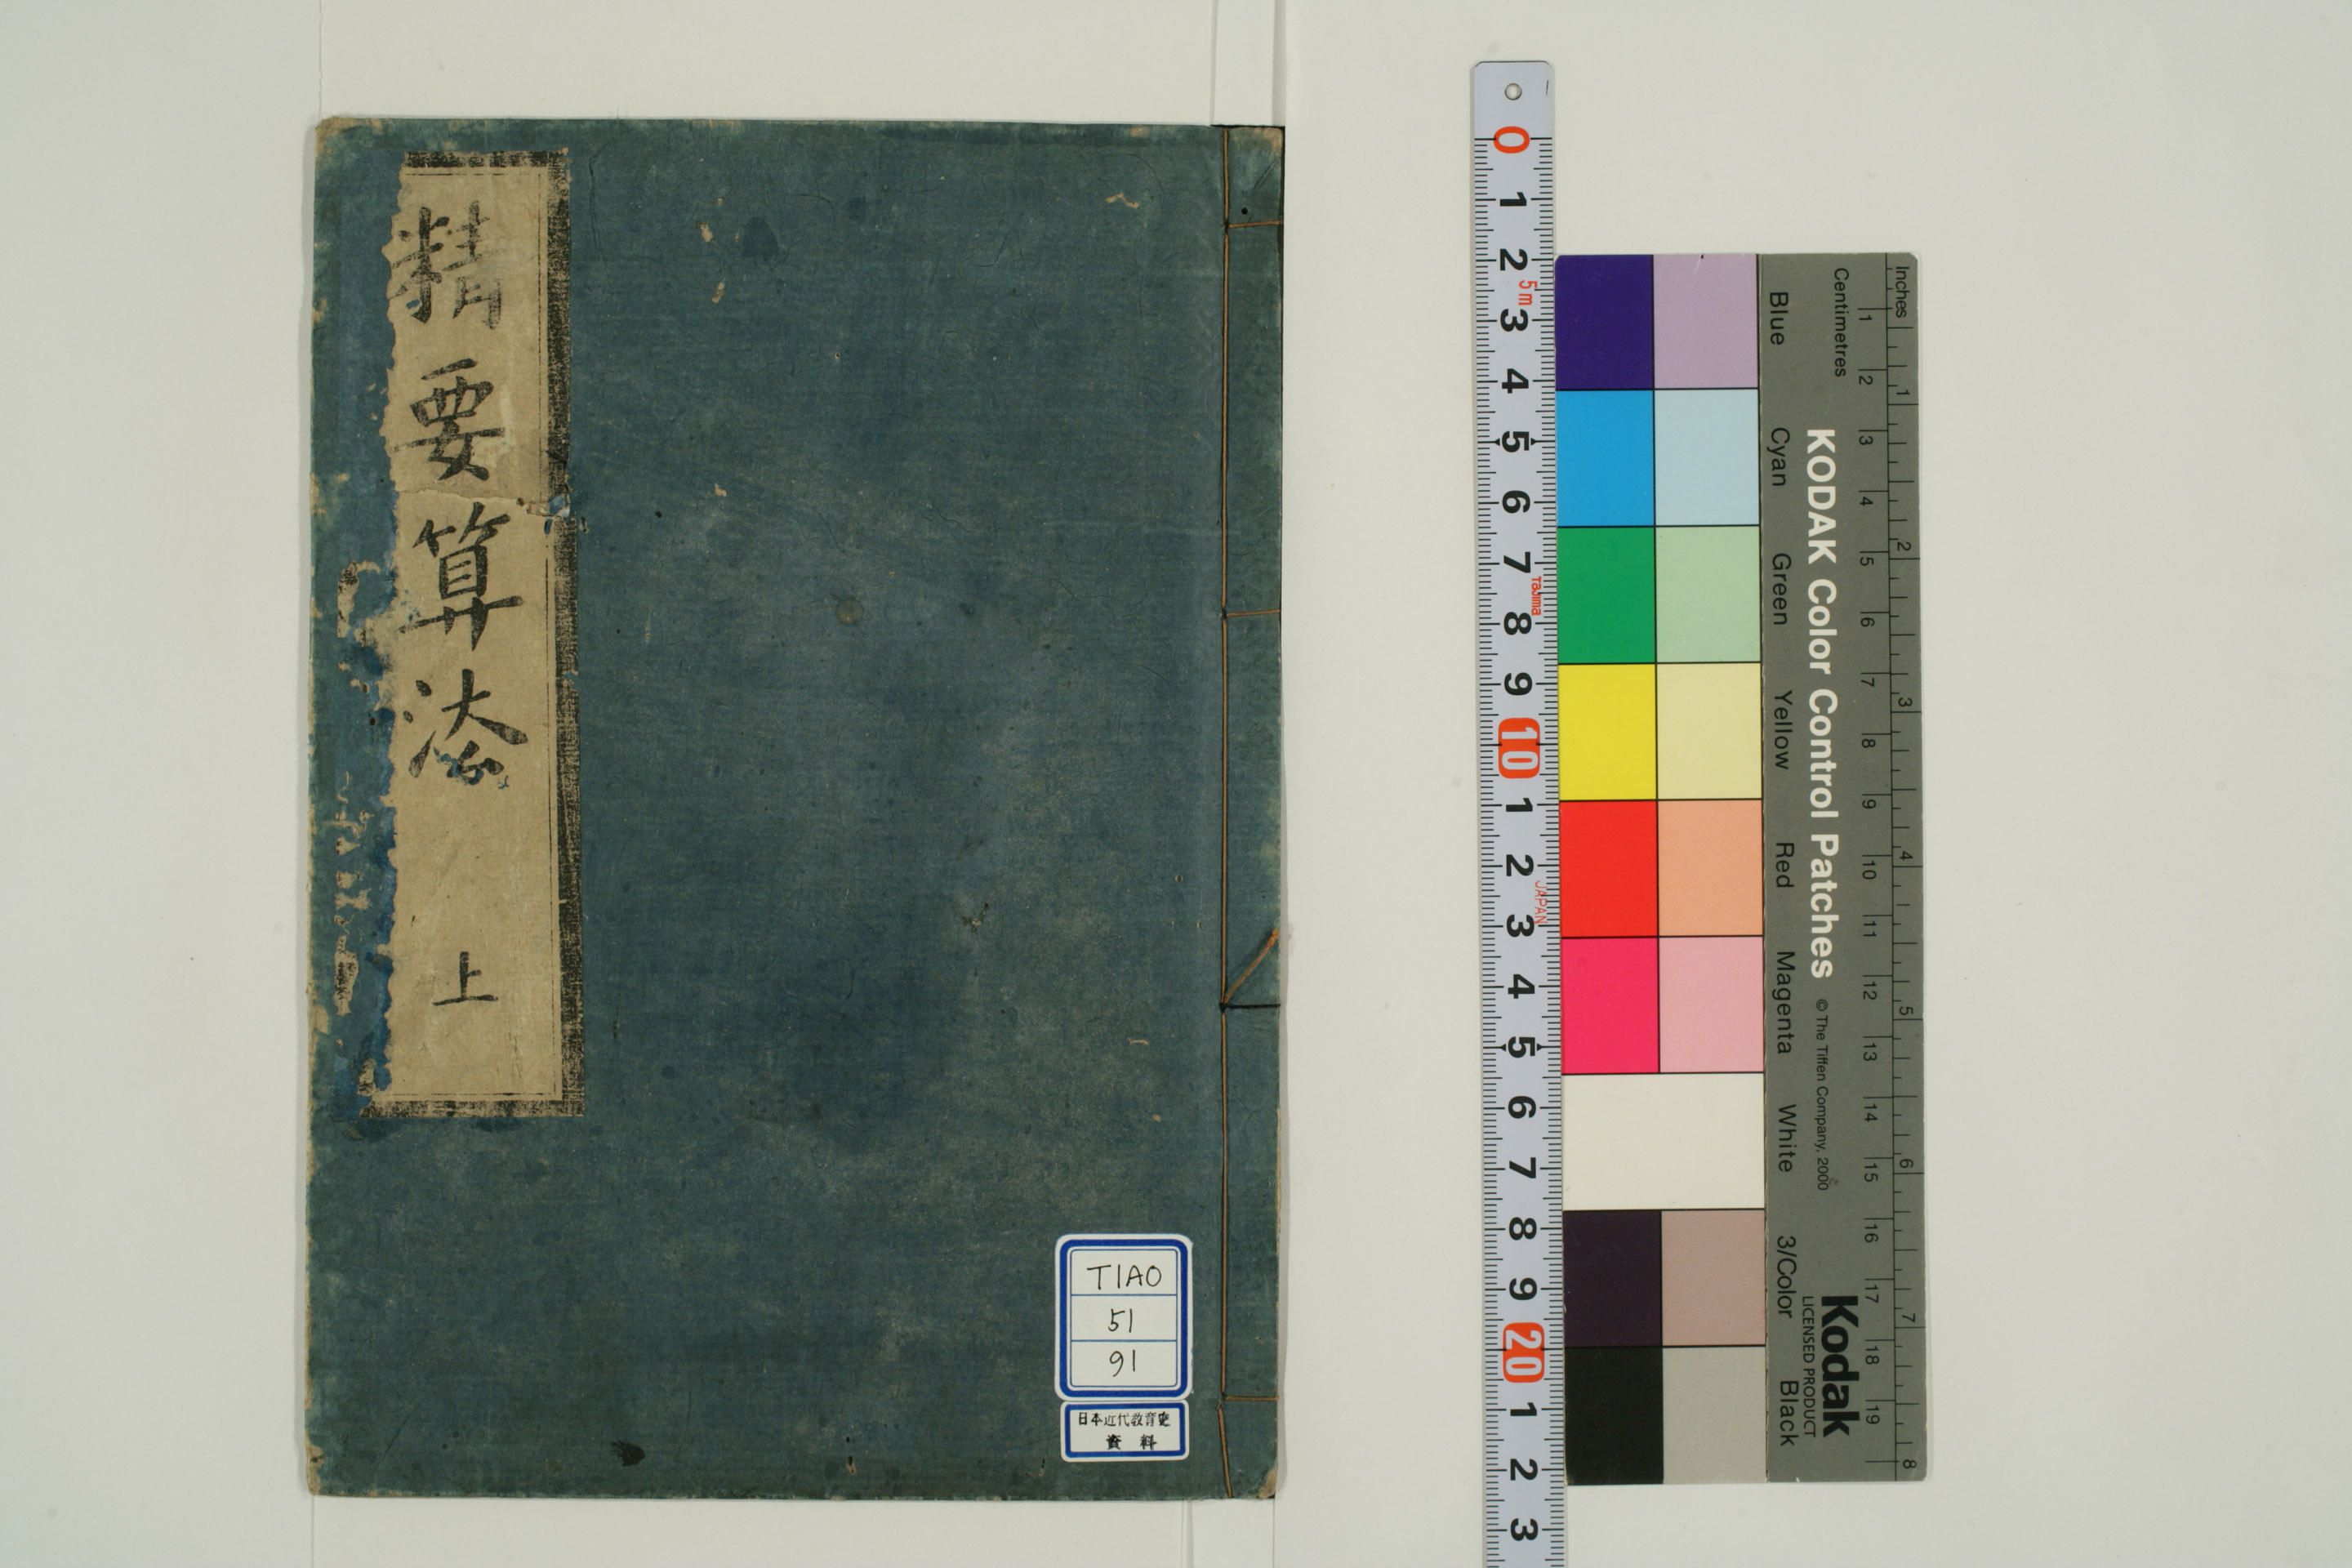 精要算法 上
TIAO
51
91
日本近代教育史
資料
0 1 2 3 4 5 6 7 8 9 10 1 2 3 4 5 6 7 8 9 20 1 2 3
5m
Tajima
JAPAN
Blue Cyan Green Yellow Red Magenta White 3/Color Black
KODAK Color Control Patches © The Tiffen Company, 2000
Kodak
LICENSED PRODUCT
Centimetres
1 2 3 4 5 6 7 8 9 10 11 12 13 14 15 16 17 18 19
Inches
1 2 3 4 5 6 7 8